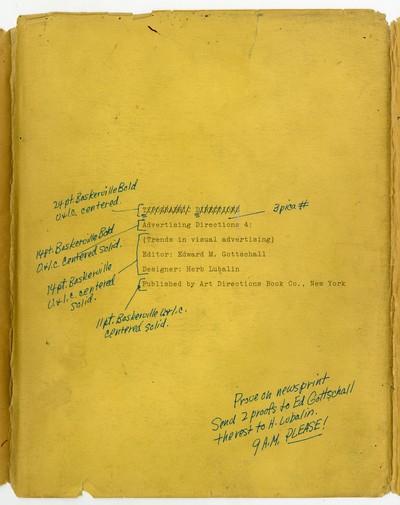 24 pt. Baskerville Bold
U.&l.c. centered.
3 pica #
14pt. Baskerville Bold
U.&l.c. centered solid.
Advertising Directions 4:
(Trends in visual advertising)
Editor: Edward M. Gottschall
14 pt. Baskerville
U.&l.c. centered
solid.
Designer: Herb Lubalin
Published by Art Directions Book Co., New York
11pt. Baskerville U.&l.c.
centered solid.
Prove on newsprint
Send 2 proofs to Ed Gottschall
the rest to H. Lubalin.
9 A.M. PLEASE!